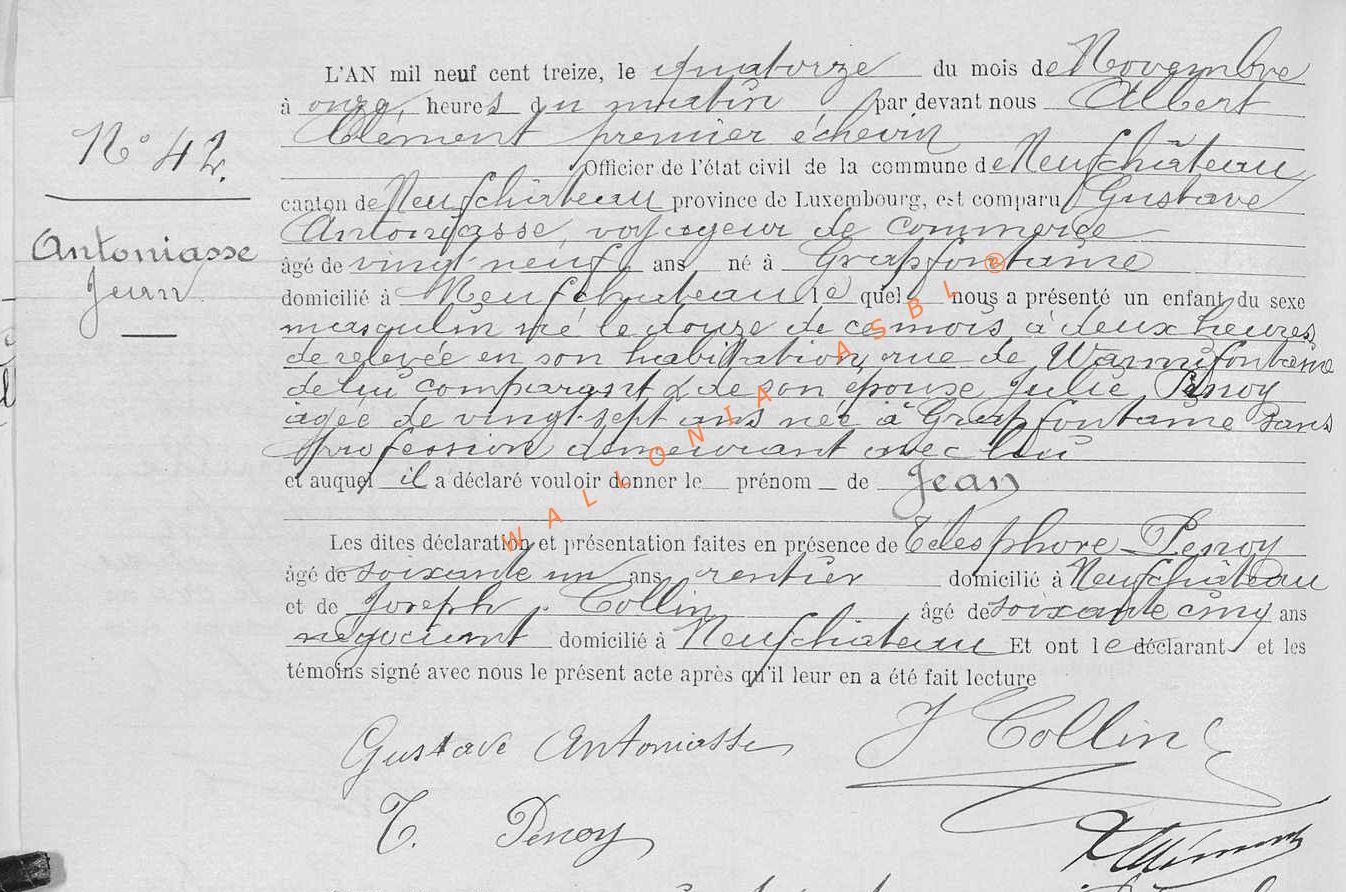 L'AN mil neuf cent treize, le quatorze du mois de Novembre
à onze heures du matin par devant nous Albert
Clément premier échevin
N° 42.
Officier de l'état civil de la commune de Neufchâteau
canton de Neufchâteau province de Luxembourg, est comparu Gustave
Antoniasse, voyageur de commerce
Antoniasse
Jean
âgé de vingt neuf ans né à Grapfontaine
domicilié à Neufchateau le quel nous a présenté un enfant du sexe
masculin né le douze de ce mois à deux heures
de relevée en son habitation, rue de Warmifontaine
de lui comparant & de son épouse Julie Penoy
agée de vingt-sept ans née à Grapfontaine sans
profession demeurant avec lui
et auquel il a déclaré vouloir donner le prénom de Jean
Les dites déclaration et présentation faites en présence de Télesphore Penoy
âgé de soixante un ans rentier domicilié à Neufchâteau
et de Joseph Collin âgé de soixante cinq ans
négociant domicilié à Neufchateau Et ont le déclarant et les
témoins signé avec nous le présent acte après qu'il leur en a été fait lecture
Gustave Antoniasse
J Collin
T. Penoy
AClément
WALLONIA ASBL ®